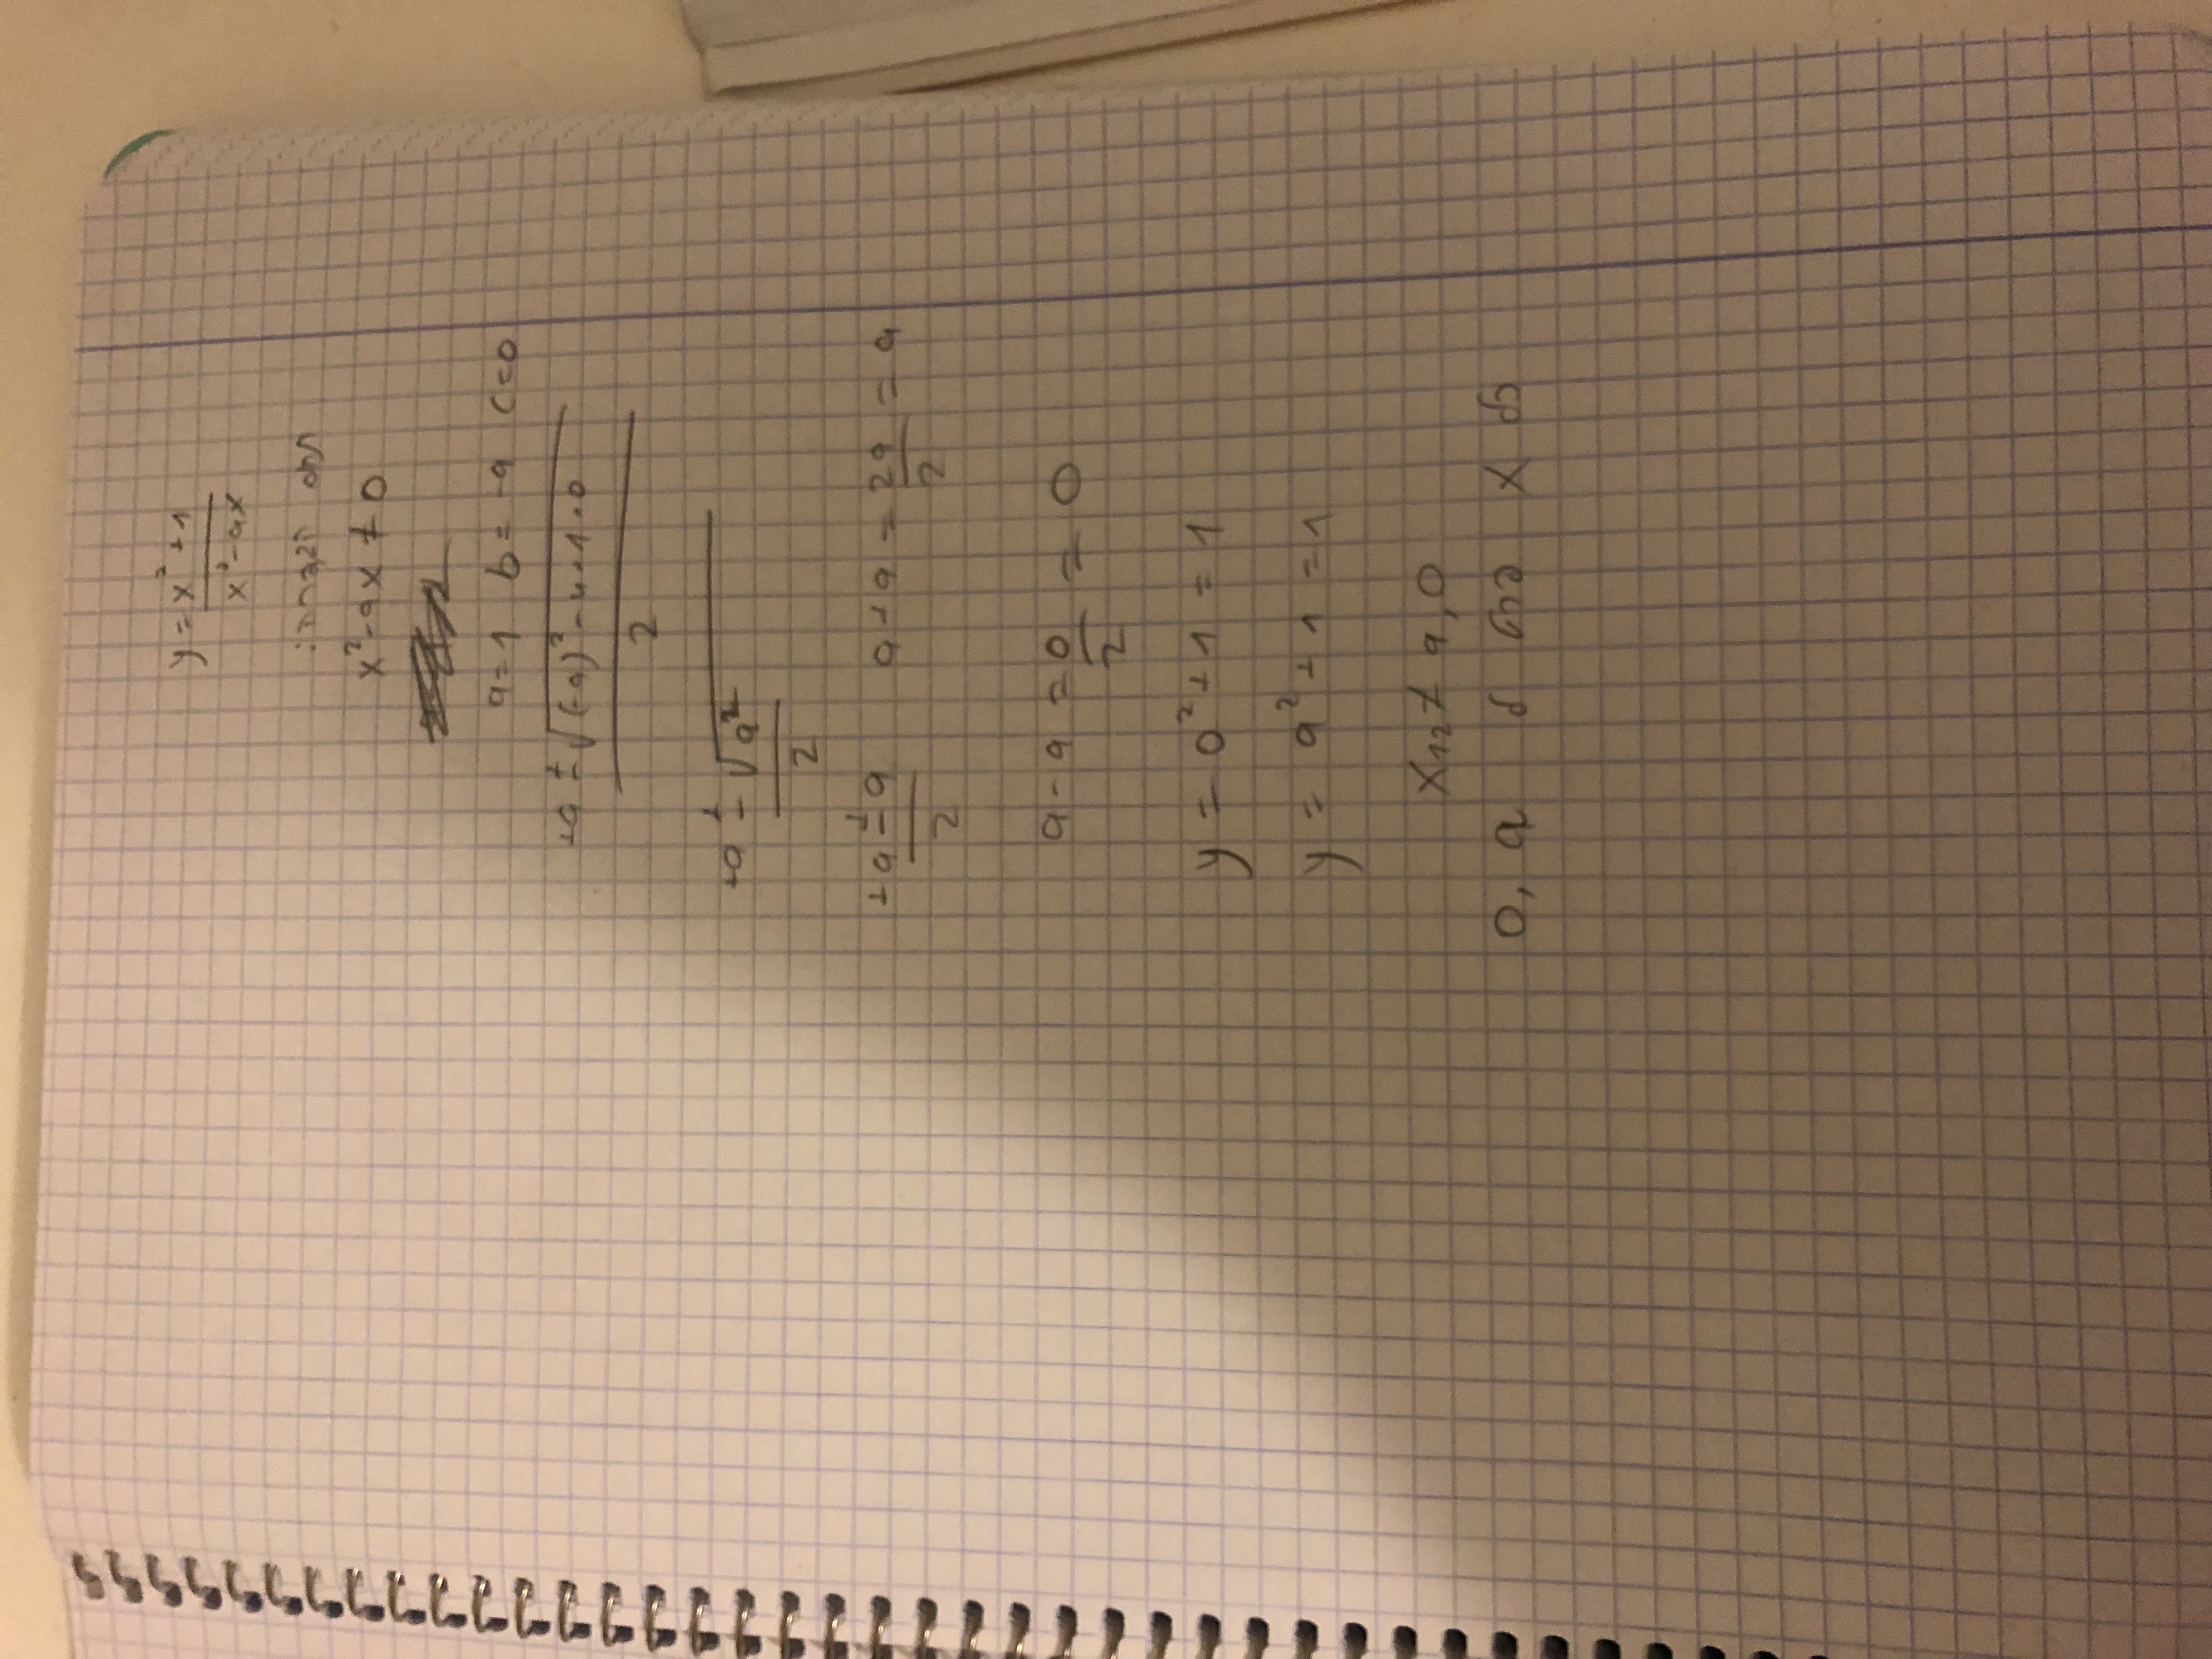 y = x² + 1
x² - ax
תחום הגדרה:
x² - ax ≠ 0
a = 1 b = -a c = 0
+a ± √(-a)² - 4 · 1 · 0
2
+a ± √a²
2
+a ± a a + a = 2a = a
2 2
a - a = 0 = 0
2
y = 0² + 1 = 1
y = a² + 1 = 1
x₁₂ ≠ a, 0
כל x פרט ל 0, a